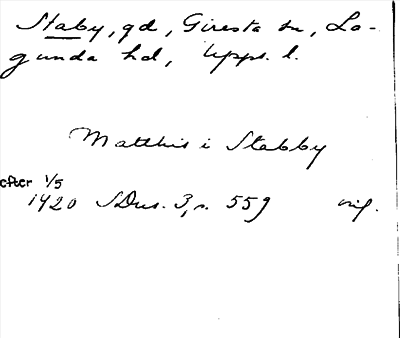 Staby, gd, Giresta sn, La-
gunda hd, Upps. l.
Matthis i Stabby
efter 1/5
1420 SDns. 3, s. 559 orig.